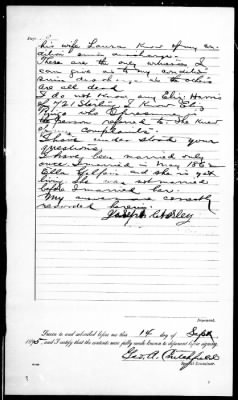 his wife Laura know of my con-
dition since discharge.
These are the only witnesses I
can give as to my condition
since discharge as the others
are all dead
I do not know any Eliz. Harris
of 721 Sterling. I know
who
the person referred to. She knew
of my complaints.
I have understood your
questions.
I have been married only
once I married in May 1862
Ella and she is yet
living. She was not married
before I married her.
My answers are correctly
recorded herein.
Joseph
Deponent.
Sworn to and subscribed before me this 14 day of Sept
1895, and I certify that the contents were fully made known to deponent before signing.
Geo. A. Critchfield
Special Examiner.